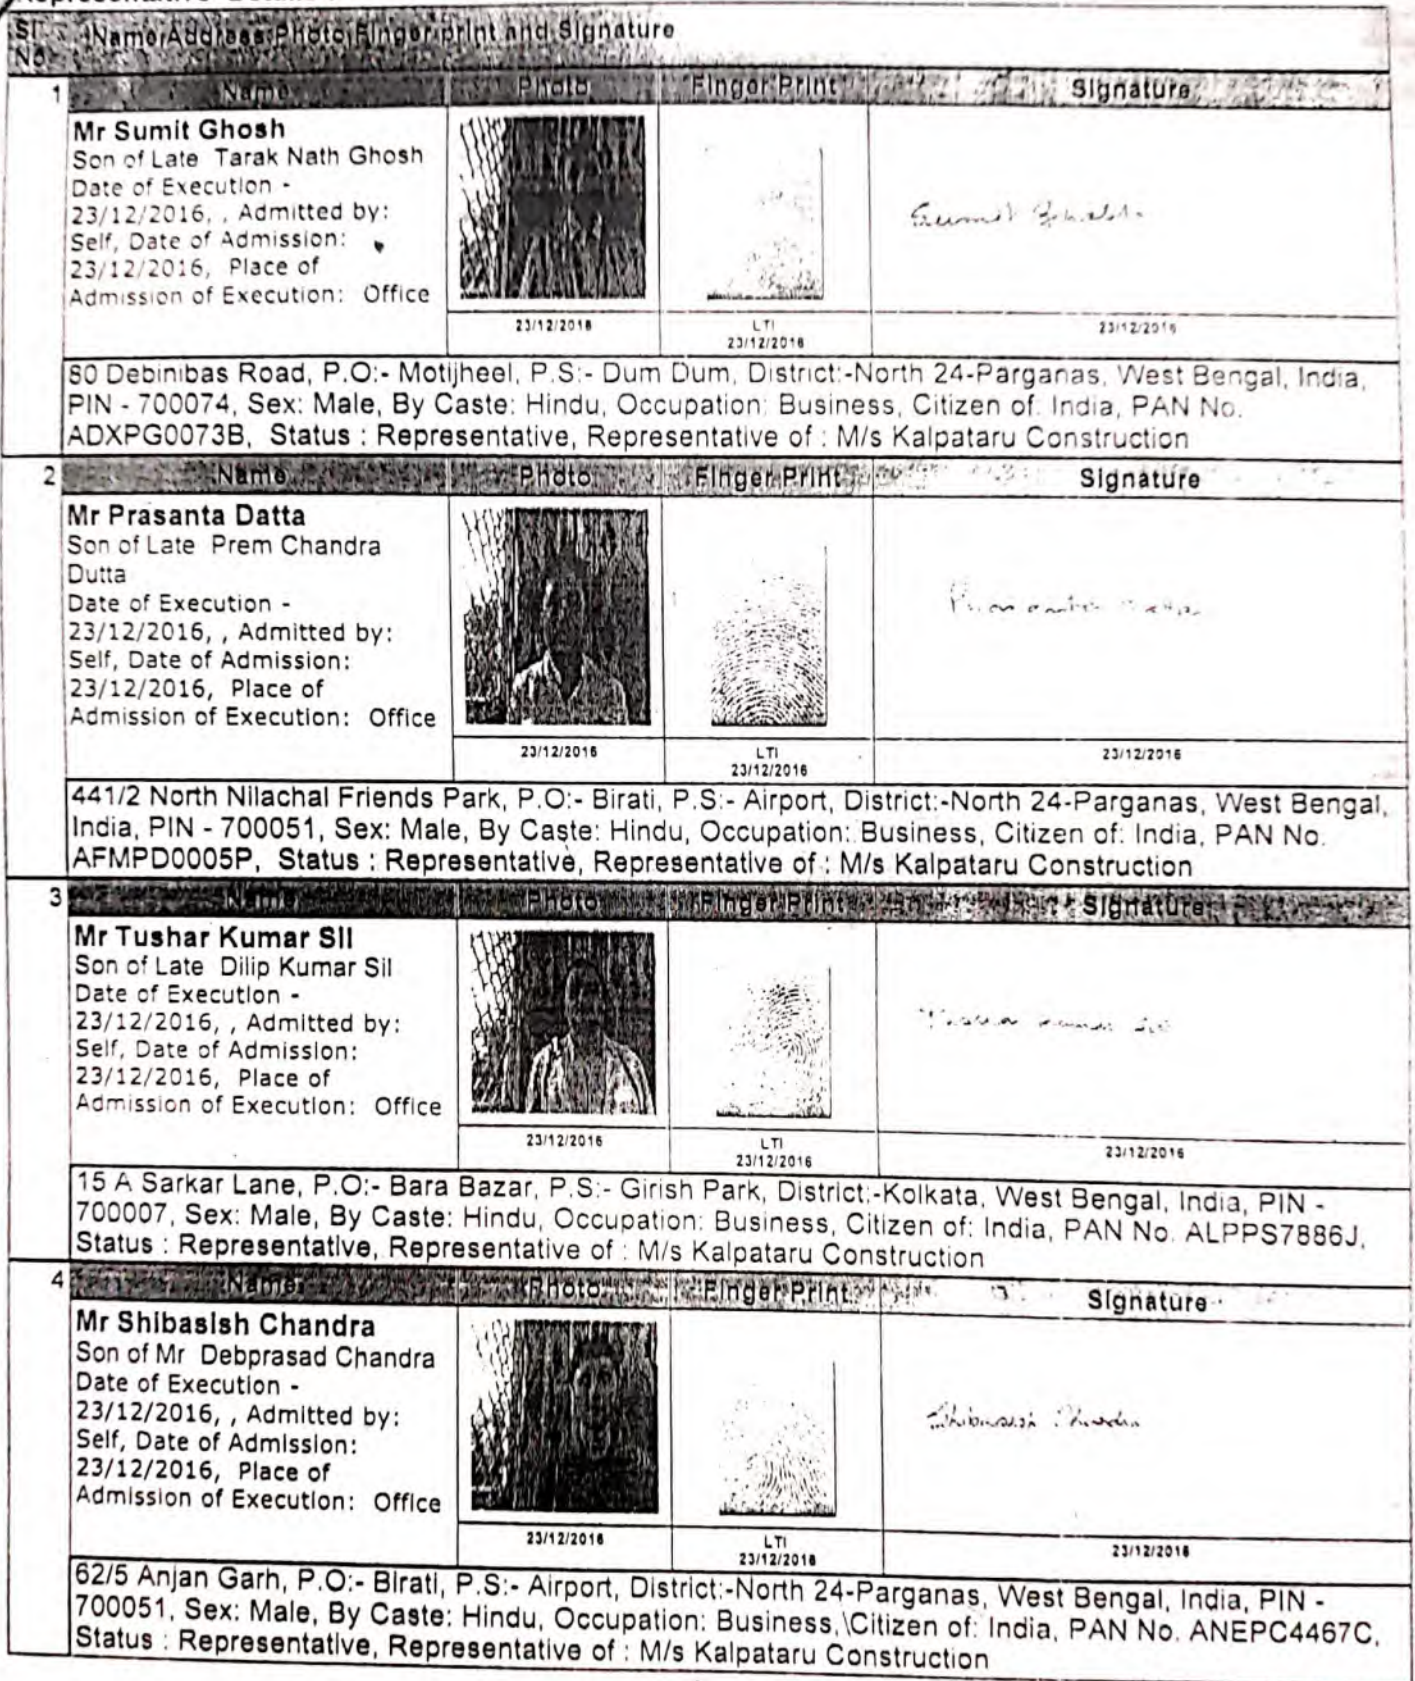 Representative Details
Sl No
Name,Address,Photo,Finger print and Signature
1
Name Photo Finger Print Signature
Mr Sumit Ghosh
Son of Late Tarak Nath Ghosh
Date of Execution -
23/12/2016, , Admitted by:
Self, Date of Admission:
23/12/2016, Place of
Admission of Execution: Office
23/12/2016
LTI
23/12/2016
23/12/2016
80 Debinibas Road, P.O:- Motijheel, P.S:- Dum Dum, District:-North 24-Parganas, West Bengal, India,
PIN - 700074, Sex: Male, By Caste: Hindu, Occupation: Business, Citizen of: India, PAN No.
ADXPG0073B, Status : Representative, Representative of : M/s Kalpataru Construction
2
Name Photo Finger Print Signature
Mr Prasanta Datta
Son of Late Prem Chandra
Dutta
Date of Execution -
23/12/2016, , Admitted by:
Self, Date of Admission:
23/12/2016, Place of
Admission of Execution: Office
23/12/2016
LTI
23/12/2016
23/12/2016
441/2 North Nilachal Friends Park, P.O:- Birati, P.S:- Airport, District:-North 24-Parganas, West Bengal,
India, PIN - 700051, Sex: Male, By Caste: Hindu, Occupation: Business, Citizen of: India, PAN No.
AFMPD0005P, Status : Representative, Representative of : M/s Kalpataru Construction
3
Name Photo Finger Print Signature
Mr Tushar Kumar Sil
Son of Late Dilip Kumar Sil
Date of Execution -
23/12/2016, , Admitted by:
Self, Date of Admission:
23/12/2016, Place of
Admission of Execution: Office
23/12/2016
LTI
23/12/2016
23/12/2016
15 A Sarkar Lane, P.O:- Bara Bazar, P.S:- Girish Park, District:-Kolkata, West Bengal, India, PIN -
700007, Sex: Male, By Caste: Hindu, Occupation: Business, Citizen of: India, PAN No. ALPPS7886J,
Status : Representative, Representative of : M/s Kalpataru Construction
4
Name Photo Finger Print Signature
Mr Shibasish Chandra
Son of Mr Debprasad Chandra
Date of Execution -
23/12/2016, , Admitted by:
Self, Date of Admission:
23/12/2016, Place of
Admission of Execution: Office
Shibasish Chandra
23/12/2016
LTI
23/12/2016
23/12/2016
62/5 Anjan Garh, P.O:- Birati, P.S:- Airport, District:-North 24-Parganas, West Bengal, India, PIN -
700051, Sex: Male, By Caste: Hindu, Occupation: Business,\Citizen of: India, PAN No. ANEPC4467C,
Status : Representative, Representative of : M/s Kalpataru Construction